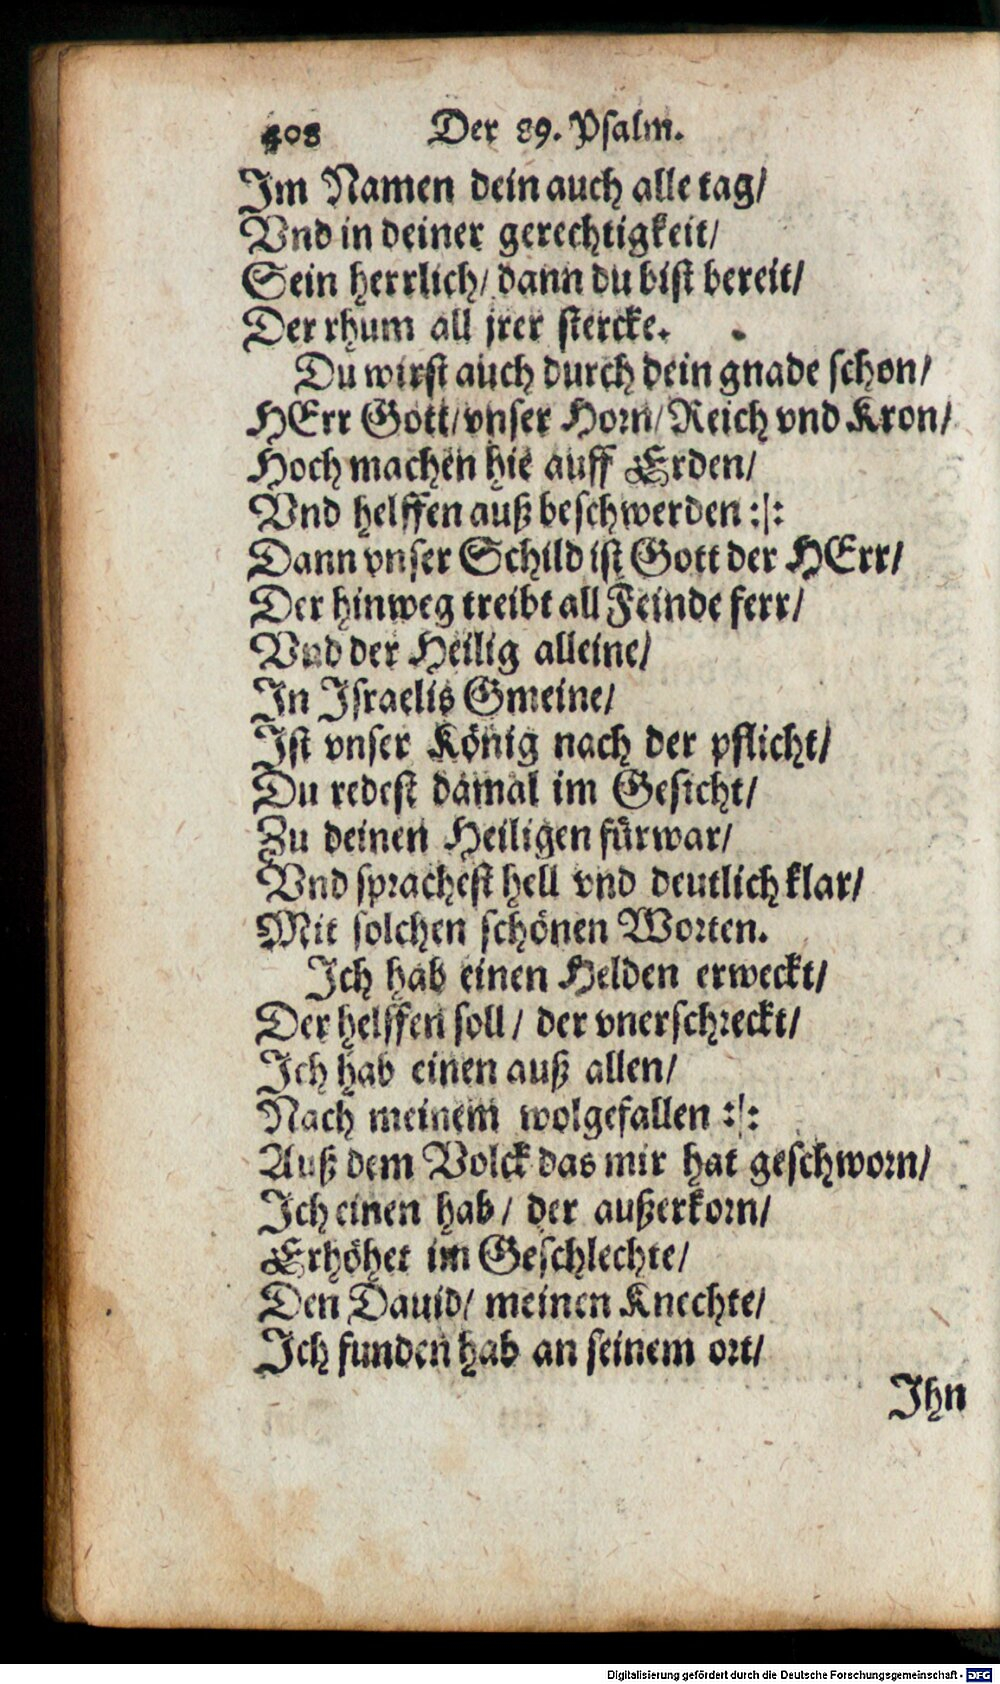 408 Der 89. Psalm.
Im Namen dein auch alle tag/
Vnd in deiner gerechtigkeit/
Sein herrlich/ dann du bist bereit/
Der rhum all jrer stercke.
Du wirst auch durch dein gnade schon/
HErr Gott/ vnser Horn/ Reich vnd Kron/
Hoch machen hie auff Erden/
Vnd helffen auß beschwerden :|:
Dann vnser Schild ist Gott der HErr/
Der hinweg treibt all Feinde ferr/
Vnd der Heilig alleine/
In Israelis Gmeine/
Ist vnser König nach der pflicht/
Du redest damal im Gesicht/
Zu deinen Heiligen fürwar/
Vnd sprachest hell vnd deutlich klar/
Mit solchen schönen Worten.
Ich hab einen Helden erweckt/
Der helffen soll/ der vnerschreckt/
Ich hab einen auß allen/
Nach meinem wolgefallen :|:
Auß dem Volck das mir hat geschworn/
Ich einen hab/ der außerkorn/
Erhöhet im Geschlechte/
Den Dauid/ meinen Knechte/
Ich funden hab an seinem ort/
Ihn
Digitalisierung gefördert durch die Deutsche Forschungsgemeinschaft - DFG